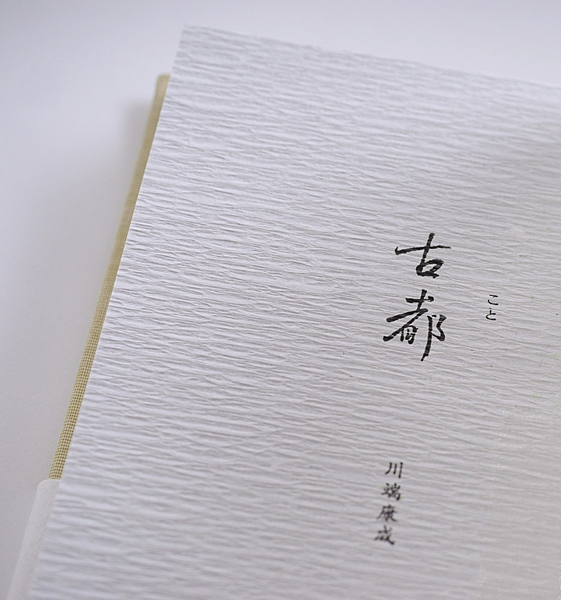 こと
古都
川端康成